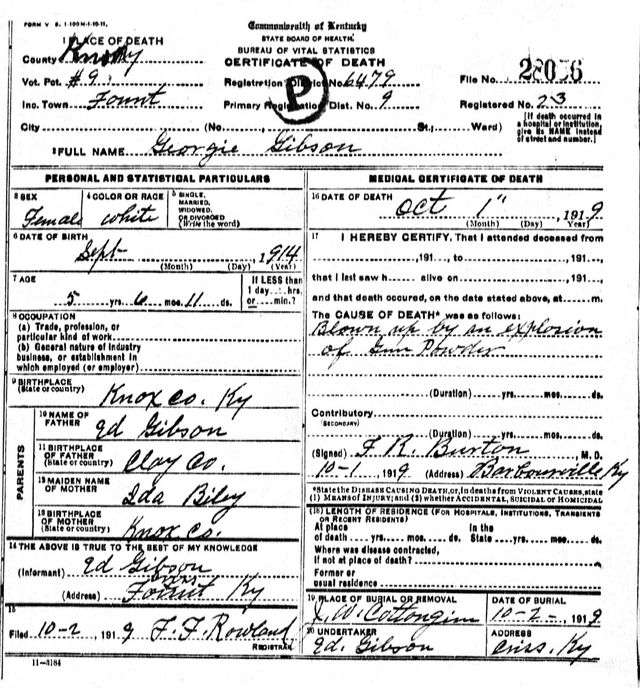 FORM V S. 1-100M-1-10-11.
Commonwealth of Kentucky
STATE BOARD OF HEALTH.
BUREAU OF VITAL STATISTICS
CERTIFICATE OF DEATH
1 PLACE OF DEATH
County Knox Ky
Vot. Pct. #9
Registration District No. 6479
File No. 28076
Inc. Town Fount
Primary Registration Dist. No. 9
Registered No. 23
P
City (No. St.; Ward)
[If death occurred in a hospital or institution, give its NAME instead of street and number.]
2 FULL NAME Georgie Gibson
PERSONAL AND STATISTICAL PARTICULARS
3 SEX
Female
4 COLOR OR RACE
white
5 SINGLE, MARRIED, WIDOWED, OR DIVORCED (Write the word)
6 DATE OF BIRTH
Sept 1914
(Month) (Day) (Year)
7 AGE
5 yrs. 6 mos. 11 ds.
If LESS than 1 day hrs. or min.?
8 OCCUPATION
(a) Trade, profession, or particular kind of work
(b) General nature of industry business, or establishment in which employed (or employer)
9 BIRTHPLACE
(State or country) Knox Co. Ky
PARENTS
10 NAME OF FATHER Ed Gibson
11 BIRTHPLACE OF FATHER (State or country) Clay Co.
12 MAIDEN NAME OF MOTHER Ida
13 BIRTHPLACE OF MOTHER (State or country) Knox Co.
14 THE ABOVE IS TRUE TO THE BEST OF MY KNOWLEDGE
(Informant) Ed Gibson
(Address) Fount Ky
15
Filed 10-2, 1919 F. F. Rowland
REGISTRAR
11-3184
MEDICAL CERTIFICATE OF DEATH
16 DATE OF DEATH
Oct 1" 1919
(Month) (Day) (Year)
17 I HEREBY CERTIFY, That I attended deceased from
, 191 , to , 191 ,
that I last saw h alive on , 191 ,
and that death occured, on the date stated above, at m.
The CAUSE OF DEATH* was as follows:
Blown up by an explosion
of Gun Powder
(Duration) yrs. mos. ds.
Contributory
(SECONDARY)
(Duration) yrs. mos. ds.
(Signed) F. R. Burton, M.D.
10-1, 1919 (Address) Barbourville Ky
*State the DISEASE CAUSING DEATH, or, in deaths from VIOLENT CAUSES, state (1) MEANS OF INJURY; and (2) whether ACCIDENTAL, SUICIDAL or HOMICIDAL
(18) LENGTH OF RESIDENCE (FOR HOSPITALS, INSTITUTIONS, TRANSIENTS OR RECENT RESIDENTS)
At place of death yrs. mos. ds. In the State yrs. mos. ds.
Where was disease contracted, if not at place of death?
Former or usual residence
19 PLACE OF BURIAL OR REMOVAL
J. W. Cottongim
DATE OF BURIAL
10-2-1919
20 UNDERTAKER
Ed. Gibson
ADDRESS
Criss, Ky